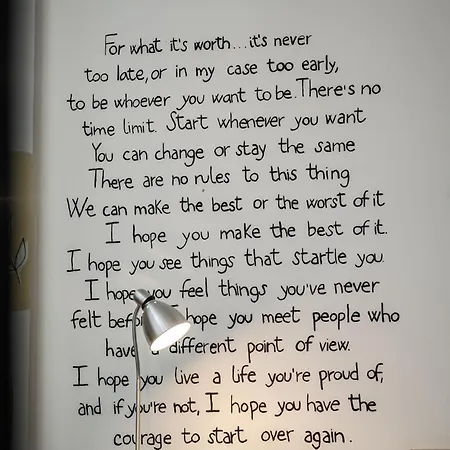 For what it's worth...it's never
too late, or in my case too early,
to be whoever you want to be. There's no
time limit. Start whenever you want
You can change or stay the same
There are no rules to this thing
We can make the best or the worst of it
I hope you make the best of it.
I hope you see things that startle you
I hope you feel things you've never
felt before I hope you meet people who
have a different point of view.
I hope you live a life you're proud of,
and if you're not, I hope you have the
courage to start over again.